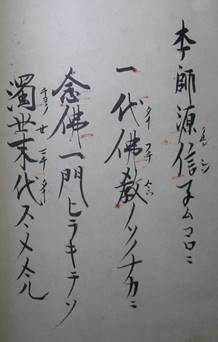 本師源信子ムコロニ
一代佛教ノソノナカニ
念佛一門ヒラキテソ
濁世末代スヽメケル